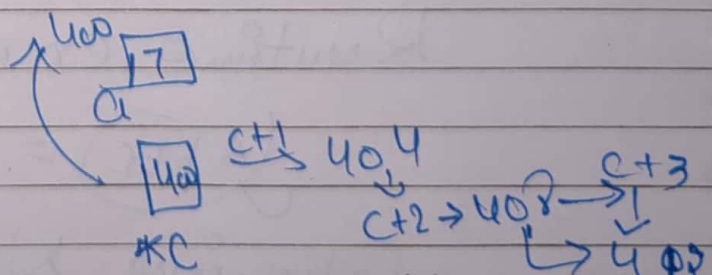 400 7
a
400 c+1 404 c+3
c+2 → 408 →
*c